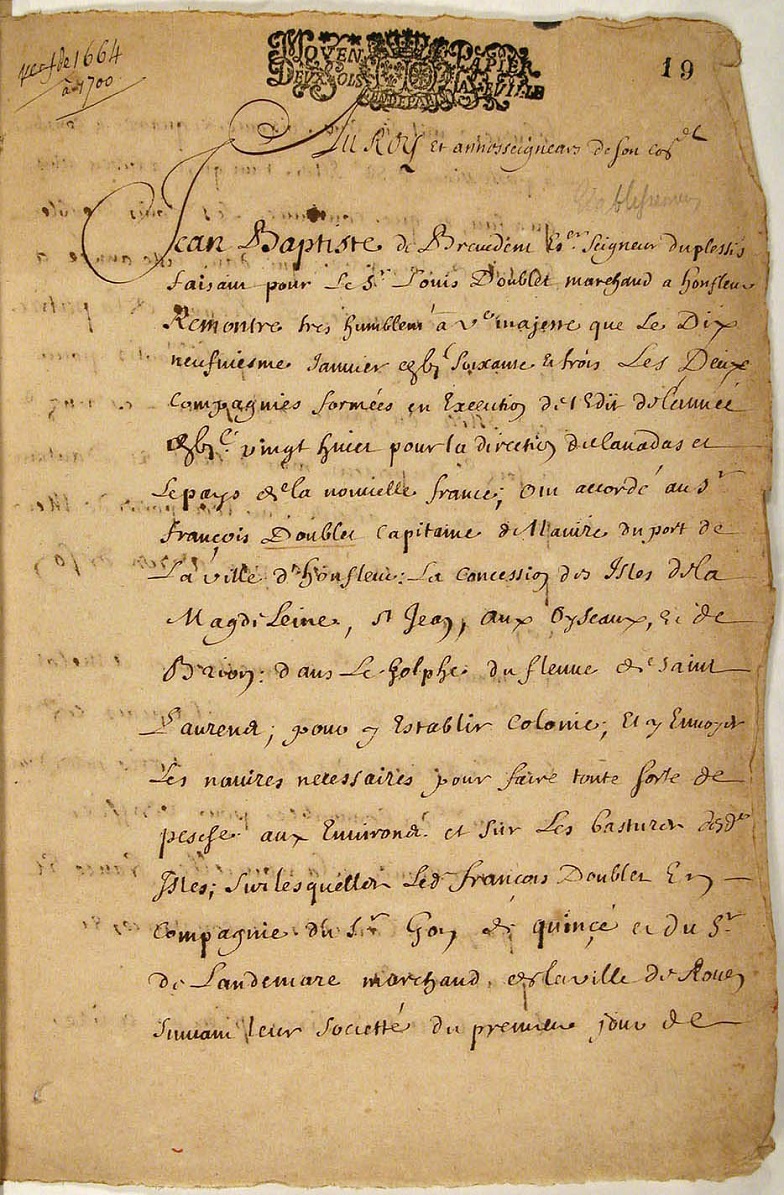 vers de 1664
à 1700
MOYEN PAPIER
DEUX SOLS LA FEUILLE
GEN DE PARIS
19
Au Roy et anosseigneurs de son cos.el
Jean Baptiste de Brevedent Es.er Seigneur duplessis
faisant pour Le S.r Louis Doublet marchand a honfleur
Remontre tres humblem.t a v.e majesté que Le Dix
neufuiesme Januier Soixante et trois Les Deux
Compagnies formées en Execution de l'Edit de l'année
vingt huict pour la direction du Canadas et
Le pays de la nouvelle france; ont accordé au S.r
françois Doublet Capitaine de Navire du port de
La ville d'honfleur: La concession des Isles de la
Magdeleine, S.t Jean, aux Oyseaux, et de
Brion: dans Le Golphe du fleuue de Saint
Laurend; pour y Establir Colonie; Et y Envoyer
Les navires necessaires pour faire toute sorte de
pesche aux Environs et sur Les bastures desd.es
Isles; Sur lesquelles Led. françois Doublet En
Compagnie du S.r Gon de quincé et du S.r
de Landemare marchand de la ville de Rouen
Suivant leur Societté du premier jour de